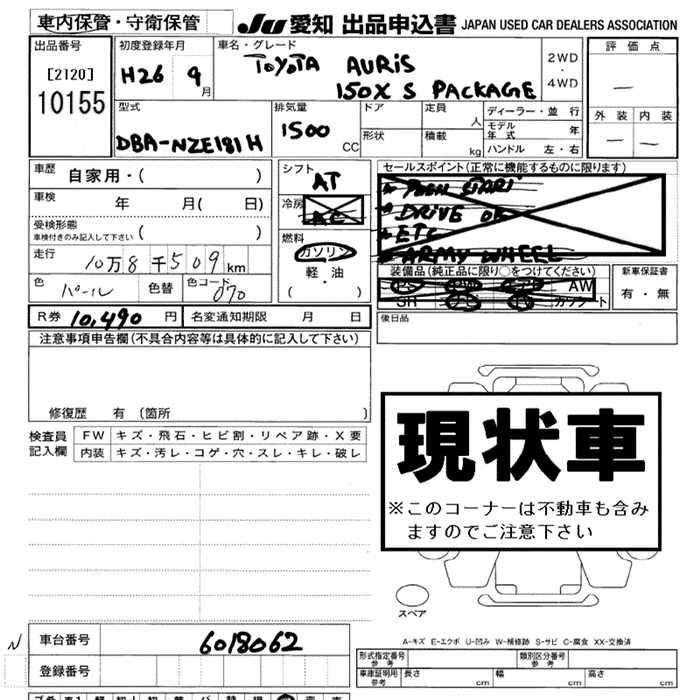 車内保管・守衛保管 JU 愛知 出品申込書 JAPAN USED CAR DEALERS ASSOCIATION
出品番号 初度登録年月 車名・グレード 評価点
[2120] H26 9月 TOYOTA AURiS 2WD・4WD —
10155 150X S PACKAGE
型式 排気量 ドア 定員 人 ディーラー・並行 外装 内装
DBA-NZE181H 1500 CC 形状 積載 kg モデル年式 年 — —
ハンドル 左・右
車歴 自家用・( ) シフト AT セールスポイント(正常に機能するものに限ります)
車検 年 月( 日) 冷房 AC
DRiVE
受検形態 ( ) ETC
車検付きのみ記入して下さい 燃料 ガソリン ARMY WHEEL
走行 10万8千509km 軽・油 装備品(純正品に限り○をつけてください) 新車保証書
色 パール 色替 色コード 070 ( ) PS PW AW 有・無
SH カセット
R券 10,490円 名変通知期限 月 日 後日品
注意事項申告欄(不具合内容等は具体的に記入して下さい)
修復歴 有(箇所 )
検査員記入欄 FW キズ・飛石・ヒビ割・リペア跡・X要
内装 キズ・汚レ・コゲ・穴・スレ・キレ・破レ
現状車
※このコーナーは不動車も含み
ますのでご注意下さい
スペア
A-キズ E-エクボ U-凹み W-補修跡 S-サビ C-腐食 XX-交換済
N 車台番号 6018062
登録番号
形式指定番号 参考 類別区分番号 参考
車庫証明用 参考 長さ cm 幅 cm 高さ cm